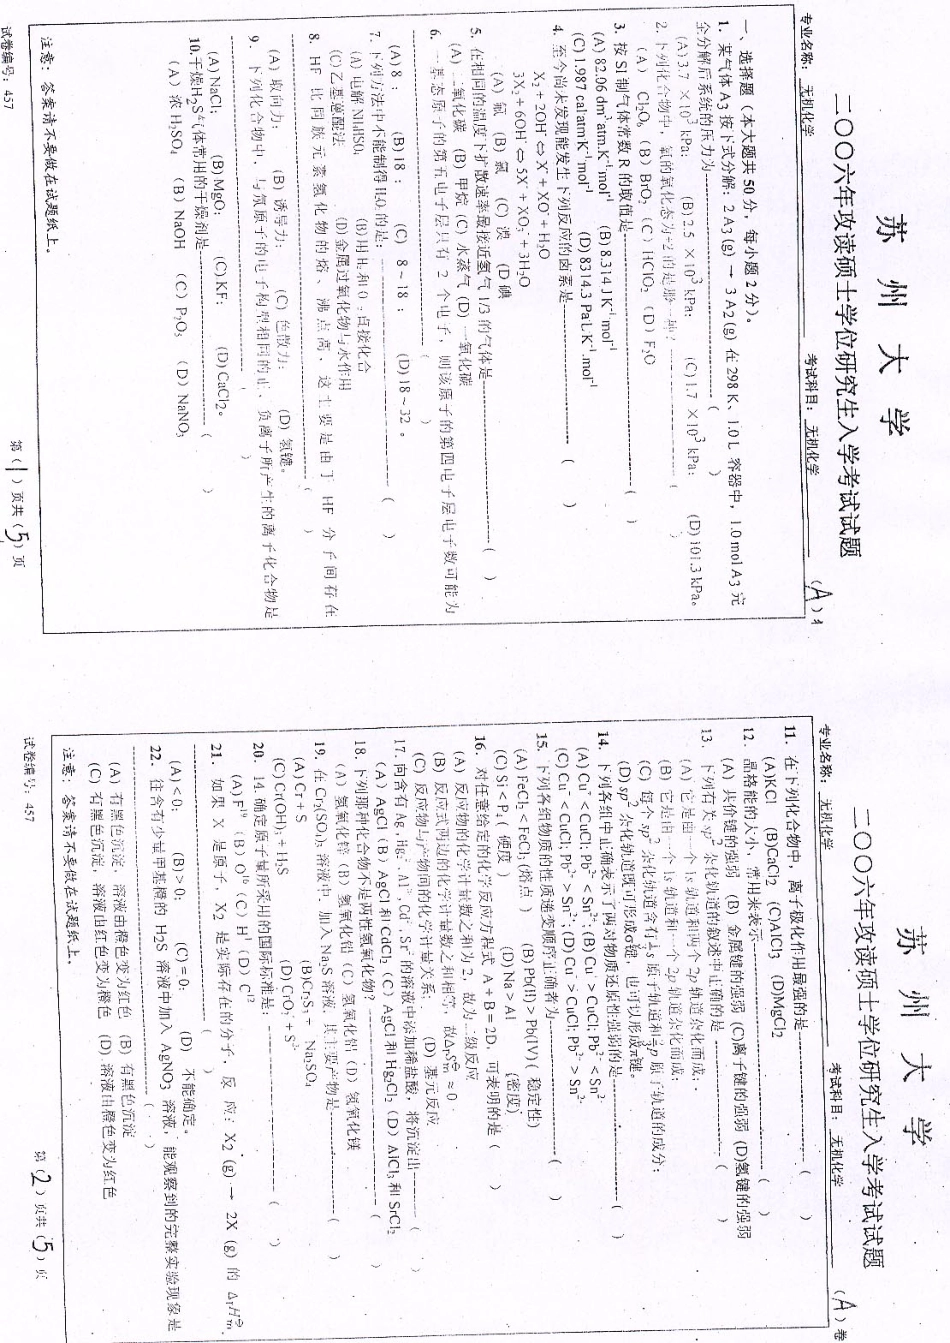 苏 州 大 学
二〇〇六年攻读硕士学位研究生入学考试试题
(A)卷
专业名称: 无机化学 考试科目: 无机化学
一、选择题（本大题共 50 分，每小题 2 分）。
1. 某气体 A3 按下式分解: 2 A3 (g) → 3 A2 (g) 在 298 K、1.0 L 容器中，1.0 mol A3 完
全分解后系统的压力为---( )
(A) 3.7 ×10³ kPa; (B) 2.5 ×10³ kPa; (C) 1.7 ×10³ kPa; (D) 101.3 kPa。
2. 下列化合物中，氧的氧化态为+2的是哪一种?---( )
(A) Cl₂O₆ (B) BrO₂ (C) HClO₂ (D) F₂O
3. 按 SI 制气体常数 R 的取值是---( )
(A) 82.06 dm³ atm.K⁻¹mol⁻¹ (B) 8.314 J K⁻¹ mol⁻¹
(C) 1.987 cal atm K⁻¹mol⁻¹ (D) 8314.3 Pa L. K⁻¹.mol⁻¹
4. 至今尚未发现能发生下列反应的卤素是---( )
X₂ + 2OH⁻ ⇔ X⁻ + XO⁻ + H₂O
3X₂ + 6OH⁻ ⇔ 5X⁻ + XO₃⁻ + 3H₂O
(A) 氟 (B) 氯 (C) 溴 (D) 碘
5. 在相同的温度下扩散速率最接近氢气 1/3 的气体是---( )
(A) 二氧化碳 (B) 甲烷 (C) 水蒸气 (D) 一氧化碳
6. 一基态原子的第五电子层只有 2 个电子，则该原子的第四电子层电子数可能为
---( )
(A) 8 ; (B) 18 ; (C) 8 ~ 18 ; (D) 18 ~ 32 。
7. 下列方法中不能制得 H₂O₂ 的是:---( )
(A) 电解 NH₄HSO₄ (B) 用 H₂ 和 O₂ 直接化合
(C) 乙基蒽醌法 (D) 金属过氧化物与水作用
8. HF 比同族元素氢化物的熔、沸点高，这主要是由于 HF 分子间存在
---( )
(A) 取向力; (B) 诱导力; (C) 色散力; (D) 氢键。
9. 下列化合物中，与氖原子的电子构型相同的正、负离子所产生的离子化合物是
---( )
(A) NaCl; (B) MgO; (C) KF; (D) CaCl₂。
10. 干燥H₂S气体常用的干燥剂是---( )
(A) 浓 H₂SO₄ (B) NaOH (C) P₂O₅ (D) NaNO₃
注意: 答案请不要做在试题纸上。
试卷编号: 457 第 (1) 页共 (5) 页
苏 州 大 学
二〇〇六年攻读硕士学位研究生入学考试试题
(A)卷
专业名称: 无机化学 考试科目: 无机化学
11. 在下列化合物中，离子极化作用最强的是---( )
(A)KCl (B)CaCl2 (C)AlCl3 (D)MgCl2
12. 晶格能的大小，常用来表示---( )
(A) 共价键的强弱 (B) 金属键的强弱 (C)离子键的强弱 (D)氢键的强弱
13. 下列有关 sp² 杂化轨道的叙述中正确的是---( )
(A) 它是由一个 1s 轨道和两个 2p 轨道杂化而成;
(B) 它是由一个 1s 轨道和一个 2p 轨道杂化而成;
(C) 每个 sp² 杂化轨道含有⅓ s 原子轨道和⅔ p 原子轨道的成分;
(D) sp² 杂化轨道既可形成σ键，也可以形成π键。
14. 下列各组中正确表示了两对物质还原性强弱的是---( )
(A) Cu⁺ < CuCl; Pb²⁺ < Sn²⁺; (B) Cu⁺ > CuCl; Pb²⁺ < Sn²⁺
(C) Cu⁺ < CuCl; Pb²⁺ > Sn²⁺; (D) Cu⁺ > CuCl; Pb²⁺ > Sn²⁺
15. 下列各组物质的性质递变顺序正确者为---( )
(A) FeCl₂ < FeCl₃ (熔点) (B) Pb(II) > Pb(IV) (稳定性)
(C) Si < P₄ (硬度) (D) Na > Al (密度)
16. 对任意给定的化学反应方程式 A + B = 2D，可表明的是 ( )
(A) 反应物的化学计量数之和为 2，故为二级反应
(B) 反应式两边的化学计量数之和相等，故ΔrSm⊖ ≈ 0
(C) 反应物与产物间的化学计量关系; (D) 基元反应
17. 向含有 Ag⁺, Hg₂²⁺, Al³⁺, Cd²⁺, Sr²⁺ 的溶液中添加稀盐酸，将沉淀出---( )
(A) AgCl (B) AgCl 和 CdCl₂ (C) AgCl 和 Hg₂Cl₂ (D) AlCl₃ 和 SrCl₂
18. 下列那种化合物不是两性氢氧化物?---( )
(A) 氢氧化锌 (B) 氢氧化铅 (C) 氢氧化铝 (D) 氢氧化镁
19. 在 Cr₂(SO₄)₃ 溶液中，加入 Na₂S 溶液，其主要产物是---( )
(A) Cr + S (B)Cr₂S₃ + Na₂SO₄
(C) Cr(OH)₃ + H₂S (D) CrO₂⁻ + S²⁻
20. 14. 确定原子量所采用的国际标准是:---( )
(A) F¹⁹ (B) O¹⁶ (C) H¹ (D) C¹²
21. 如果 X 是原子，X₂ 是实际存在的分子，反应: X₂ (g) → 2X (g) 的 ΔrHm⊖
---( )
(A) < 0; (B) > 0; (C) = 0; (D) 不能确定。
22. 往含有少量甲基橙的 H₂S 溶液中加入 AgNO₃ 溶液，能观察到的完整实验现象是
---( )
(A) 有黑色沉淀，溶液由橙色变为红色 (B) 有黑色沉淀
(C) 有黑色沉淀，溶液由红色变为橙色 (D) 溶液由橙色变为红色
注意: 答案请不要做在试题纸上。
试卷编号: 457 第 (2) 页共 (5) 页